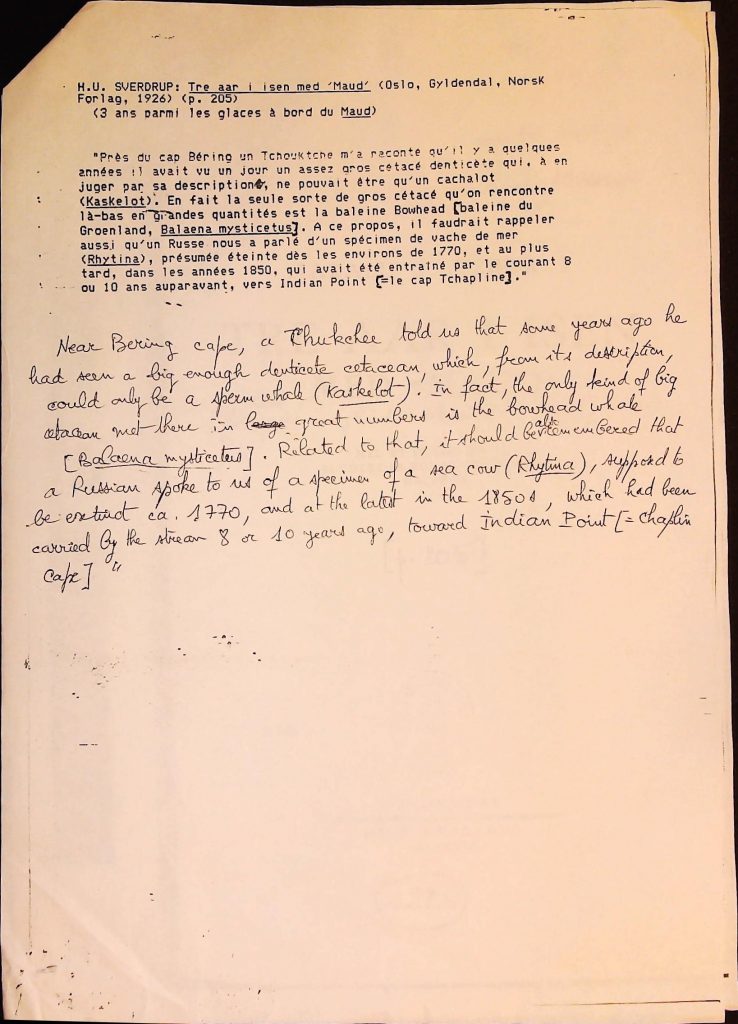 H.U. SVERDRUP: Tre aar i isen med 'Maud' (Oslo, Gyldendal, Norsk
Forlag, 1926) (p. 205)
(3 ans parmi les glaces à bord du Maud)
"Près du cap Béring un Tchouktche m'a raconté qu'il y a quelques
années il avait vu un jour un assez gros cétacé denticète qui, à en
juger par sa description, ne pouvait être qu'un cachalot
(Kaskelot). En fait la seule sorte de gros cétacé qu'on rencontre
là-bas en grandes quantités est la baleine Bowhead [baleine du
Groenland, Balaena mysticetus]. A ce propos, il faudrait rappeler
aussi qu'un Russe nous a parlé d'un spécimen de vache de mer
(Rhytina), présumée éteinte dès les environs de 1770, et au plus
tard, dans les années 1850, qui avait été entraîné par le courant 8
ou 10 ans auparavant, vers Indian Point [=le cap Tchapline]."
Near Bering cape, a Chukchee told us that some years ago he
had seen a big enough denticete cetacean, which, from its description,
could only be a sperm whale (Kaskelot). In fact, the only kind of big
cetacean met there in large great numbers is the bowhead whale
[Balaena mysticetus]. Related to that, it should be also remembered that
a Russian spoke to us of a specimen of a sea cow (Rhytina), supposed to
be extinct ca. 1770, and at the latest in the 1850s, which had been
carried by the stream 8 or 10 years ago, toward Indian Point [= Chaplin
Cape] "